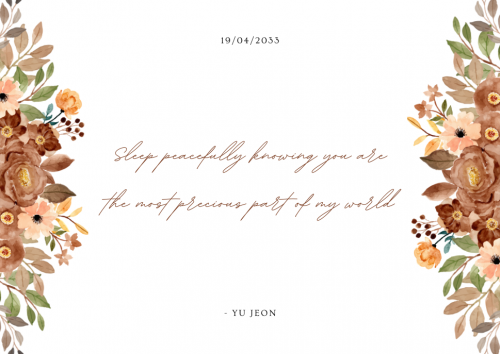 19/04/2033
Sleep peacefully knowing you are
the most precious part of my world
- YU JEON